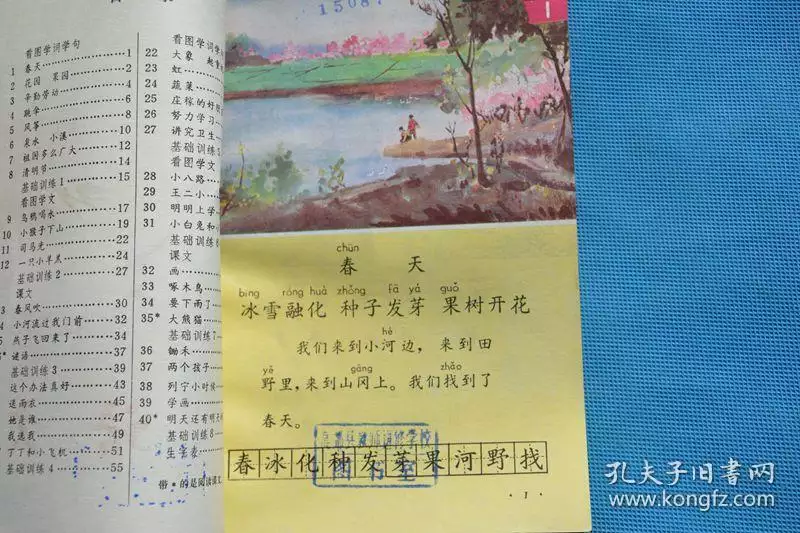 看图学词学句
1 春天……………1
2 花园 果园……………2
3 辛勤劳动……………4
4 跳学……………4
5 风筝……………8
6 泉水 小溪……………10
7 祖国多么广大……………12
8 清明节……………14
基础训练1……………15
看图学文
9 乌鸦喝水……………17
10 小猴子下山……………19
11 司马光……………22
12 一只小羊羔……………24
基础训练2……………27
课文
3 春风吹……………30
4 小河流过我门前……………32
5 燕子飞回来了……………34
谜语……………35
基础训练3……………39
这个办法真好……………43
送雨衣……………45
她是谁……………47
我选我……………49
丁丁和小飞机……………51
基础训练4……………55
看图学词学
22 大象
23 虹
24 蔬菜
25 庄稼的好朋
26 努力学习
27 讲究卫生
基础训练
看图学文
28 小八路
29 王二小
30 明明上学
31 小白兔和小
基础训练6
课文
32 画
33 啄木鸟
34 要下雨了
35* 大熊猫
基础训练7
36 锄禾
37 两个孩子
38 列宁小时候
39 学画
40* 明天还有明天
基础训练8
生字表
1508
1
chūn
春 天
bīng róng huà zhǒng fā yá guǒ
冰雪融化 种子发芽 果树开花
hé
我们来到小河边，来到田
yě gāng zhǎo
野里，来到山冈上。我们找到了
春天。
春冰化种发芽果河野找
图书室
·1·
孔夫子旧书网
www.kongfz.com